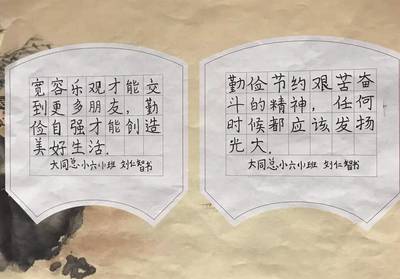 宽容乐观才能交
到更多朋友，勤
俭自强才能创造
美好生活.
大同总小六小班 刘仁智书
勤俭节约艰苦奋
斗的精神，任何
时候都应该发扬
光大.
大同总小六小班 刘仁智书